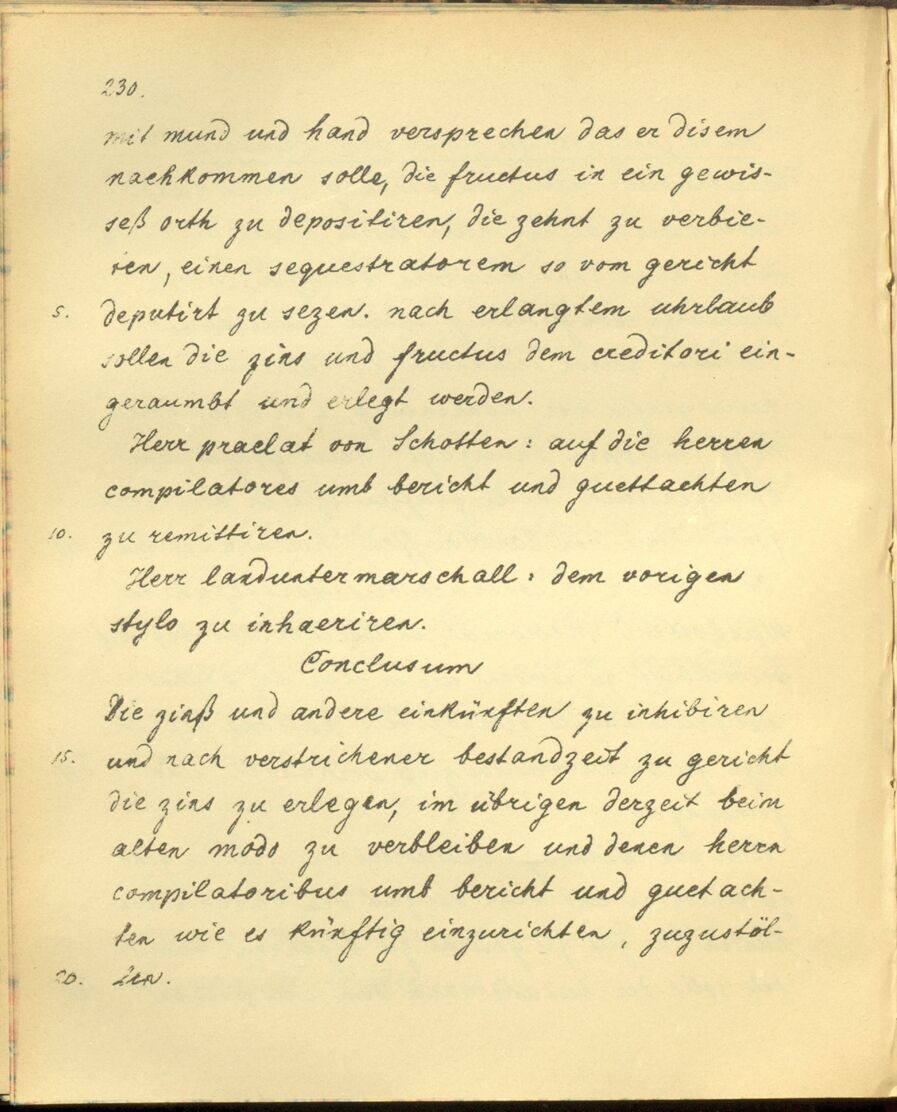 230.
mit mund und hand versprechen das er disem
nachkommen solle, die fructus in ein gewis-
seß orth zu depositiren, die zehnt zu verbie-
ten, einen sequestratorem so vom gericht
5. deputirt zu sezen. nach erlangtem uhrlaub
sollen die zins und fructus dem creditori ein-
geraumbt und erlegt werden.
Herr praelat von Schotten: auf die herren
compilatores umb bericht und guettachten
10. zu remittiren.
Herr landuntermarschall: dem vorigen
stylo zu inhaeriren.
Conclusum
Die zinß und andere einkünften zu inhibiren
15. und nach verstrichener bestandzeit zu gericht
die zins zu erlegen, im übrigen derzeit beim
alten modo zu verbleiben und denen herrn
compilatoribus umb bericht und guetach-
ten wie es künftig einzurichten, zuzustöl-
20. len.